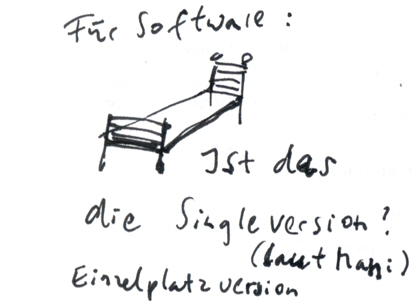 Für Software:
Ist das
die Singleversion?
(laut Hani)
Einzelplatzversion